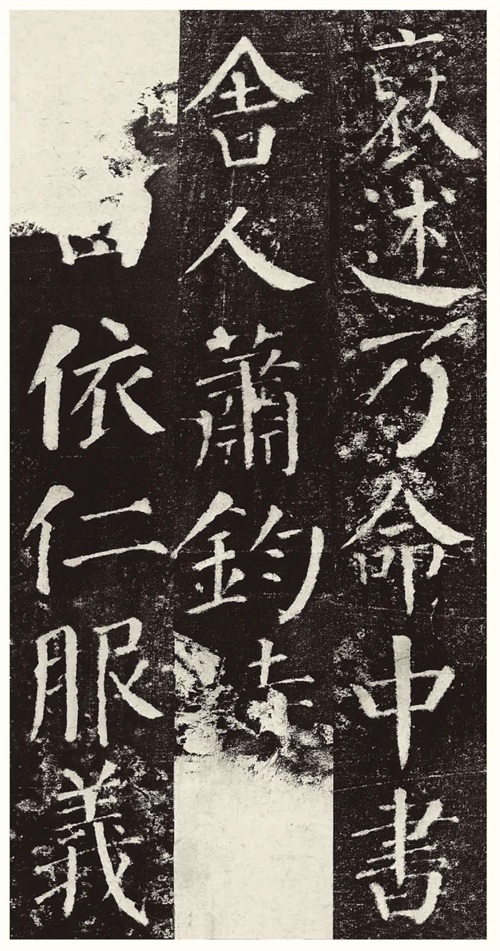 述乃命中書
舍人蕭鈞
依仁服義